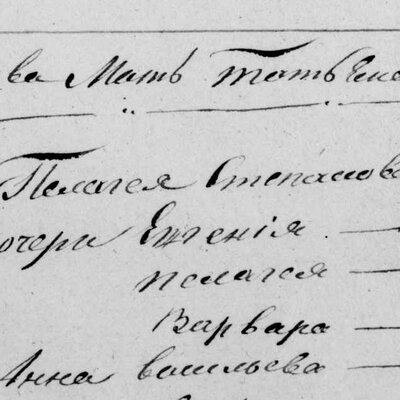 ва Мать Татьяна
Пелагея Степанова
дочери Евгенія
пелагея
Варвара
Анна васильева